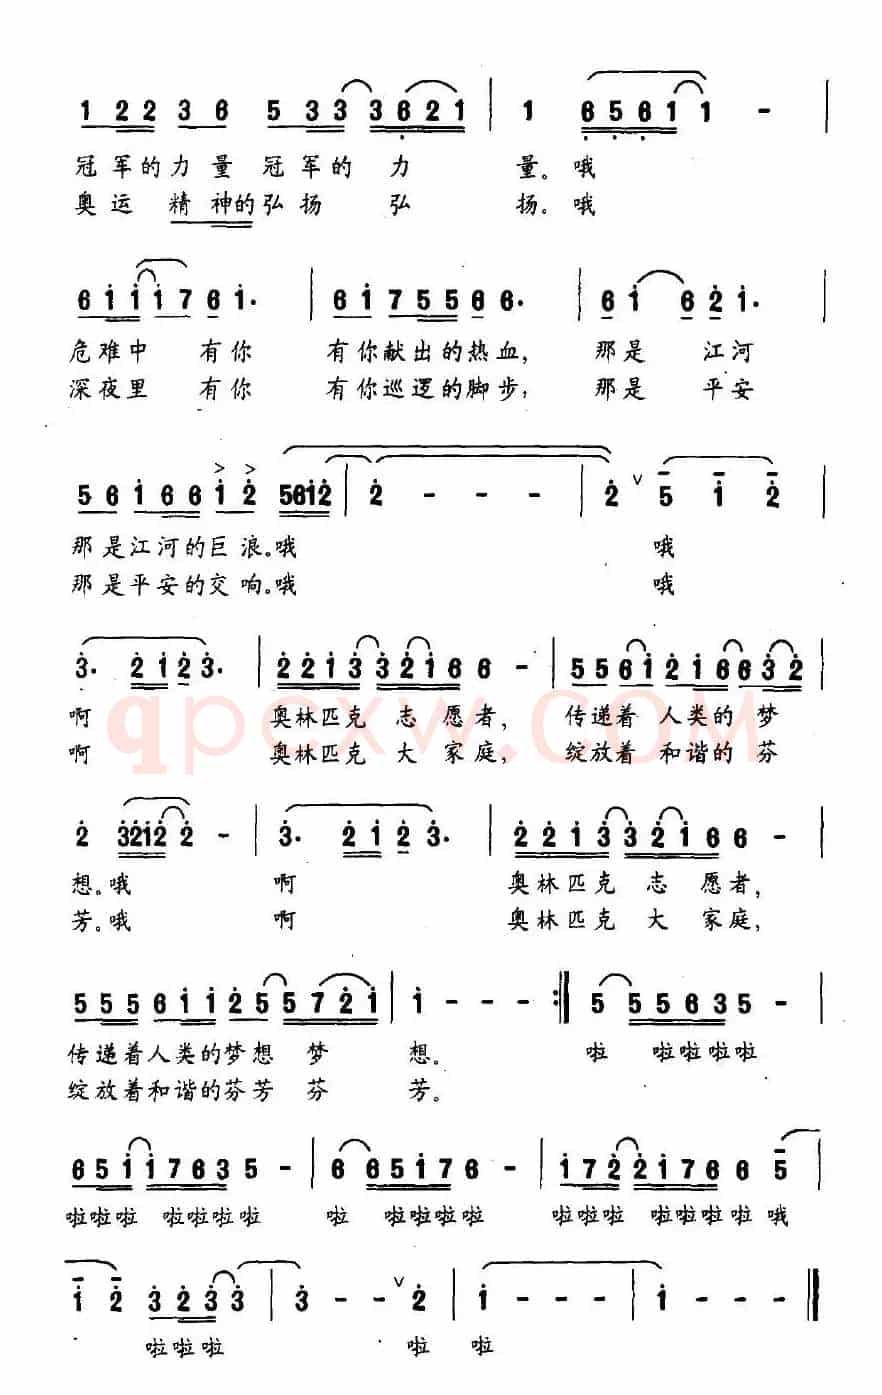 1 2 2 3 6 5 3 3 3 6 2 1 | 1 6 5 6 1 1 - |
冠军的力量 冠军的 力 量。哦
奥运 精神的弘扬 弘 扬。哦
6 1 1 1 7 6 1· | 6 1 7 5 5 6 6· | 6 1 6 2 1·
危难中 有你 有你献出的热血, 那是 江河
深夜里 有你 有你巡逻的脚步, 那是 平安
5 6 1 6 6 1 2 5612 | 2 - - - | 2 ∨ 5 1 2 |
那是江河的巨浪。哦 哦
那是平安的交响。哦 哦
3· 2 1 2 3· | 2 2 1 3 3 2 1 6 6 - | 5 5 6 1 2 1 6 6 3 2 |
啊 奥林匹克 志愿者, 传递着 人类的 梦
啊 奥林匹克 大家庭, 绽放着 和谐的 芬
qpcxw.COM
2 3212 2 - | 3· 2 1 2 3· | 2 2 1 3 3 2 1 6 6 - |
想。哦 啊 奥林匹克 志愿者,
芳。哦 啊 奥林匹克 大家庭,
5 5 5 6 1 1 2 5 5 7 2 1 | 1 - - - :‖ 5 5 5 6 3 5 - |
传递着人类的梦想 梦 想。 啦 啦啦啦啦
绽放着和谐的芬芳 芬 芳。
6 5 1 1 7 6 3 5 - | 6 6 5 1 7 6 - | 1 7 2 2 1 7 6 6 5 |
啦啦啦 啦啦啦啦 啦 啦啦啦啦 啦啦啦 啦啦啦啦哦
1 2 3 2 3 3 | 3 - - ∨ 2 | 1 - - - | 1 - - - ‖
啦啦啦 啦 啦